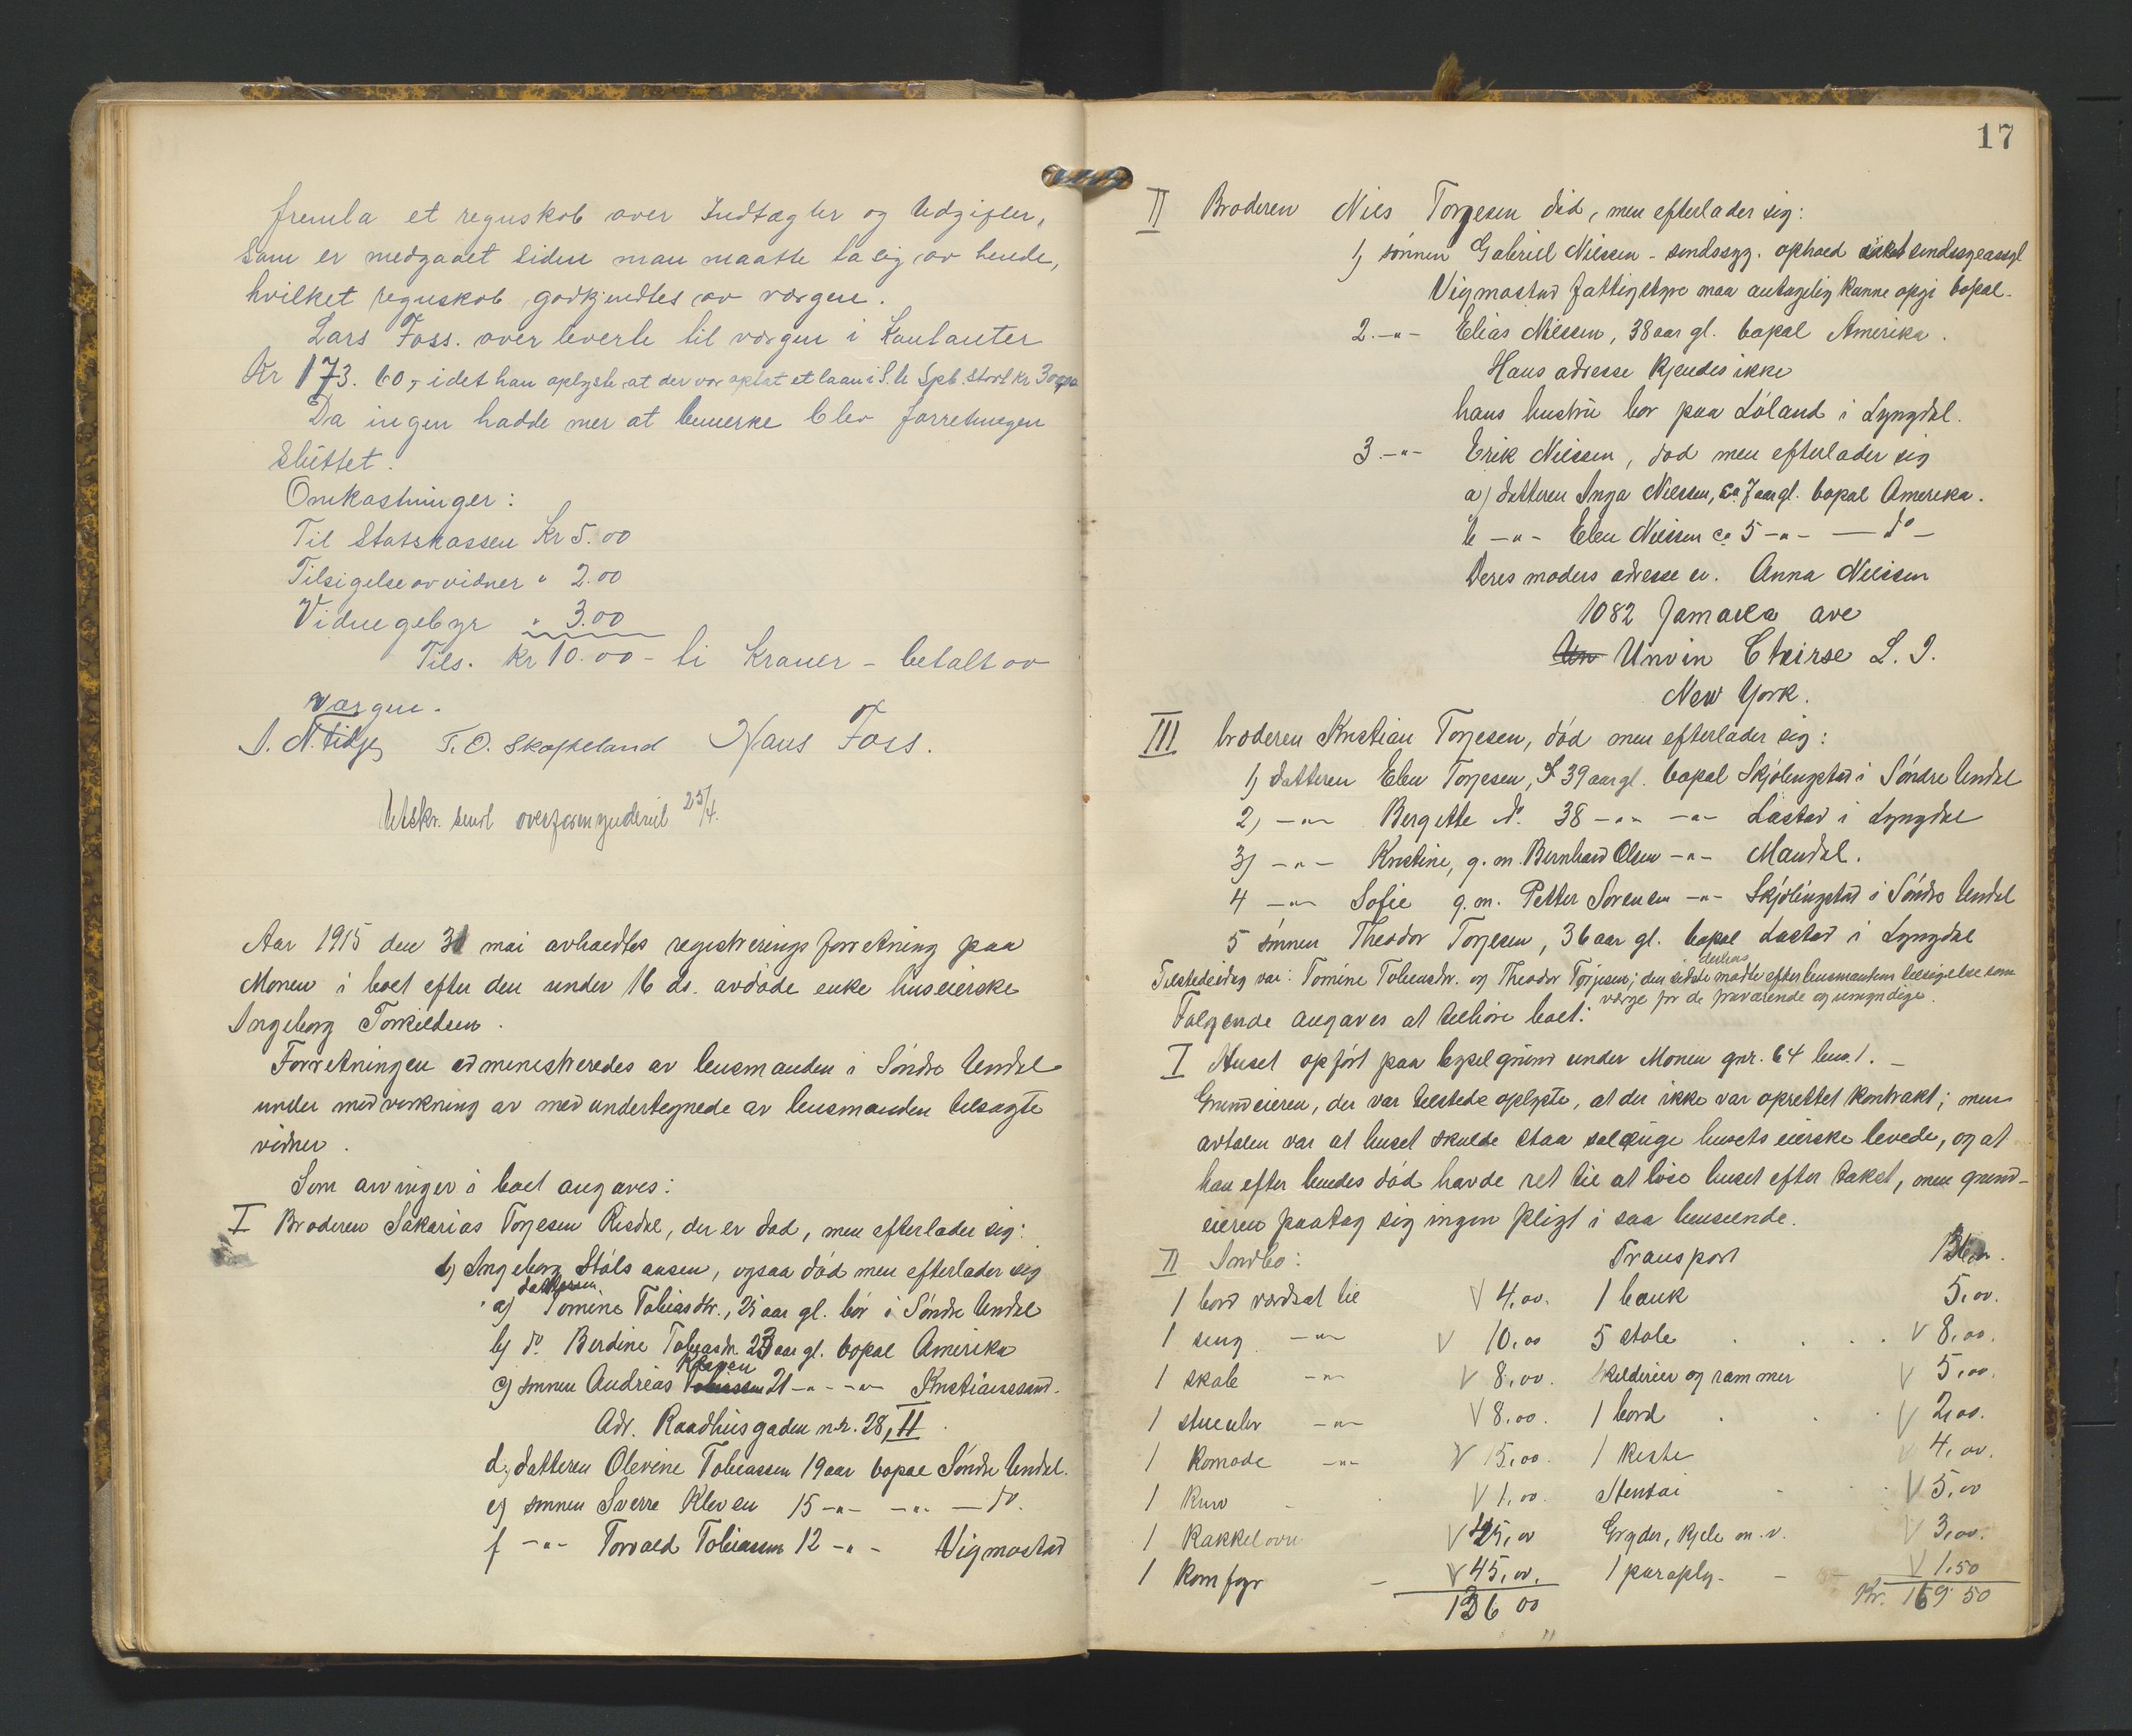 fremla et regnskab over Indtægter og Udgifter,
som er medgaaet siden man maatte ta sig av hende,
hvilket regnskab godkjendtes av værgen.
Lars Foss. over leverte til værgen i Kontanter
Kr 173.60, idet han oplyste at der var optat et laan i S. U. Spb. stort kr 30
Da ingen hadde mer at bemerke blev forretningen
sluttet.
Omkostninger:
Til Statskassen Kr 5.00
Tilsigelse av vidner " 2.00
Vidnegebyr " 3.00
Tils. Kr 10.00 - ti Kroner - betalt av
værgen.
T. O. Skofteland Hans Foss.
Utskr. sendt overformynderiet 25/4.
Aar 1915 den 31 mai avholdtes registreringsforretning paa
Monen i boet efter den under 16 ds. avdøde enke huseierske
Ingeborg Torkildsen.
Forretningen administreredes av lensmanden i Søndre Undal
under medvirkning av medundertegnede av lensmanden tilsagte
vidner.
Som arvinger i boet angaves:
I Broderen Sakarias Torjesen Risdal, der er død, men efterlader sig:
1) Ingeborg Ståls ansen, ogsaa død men efterlader sig
datteren
a) Tomine Tobiasdtr., 25 aar gl. bor i Søndre Undal
b) do. Berdine Tobiasdtr. 23 aar gl. bopæl Amerika
Kleven
c) sønnen Andreas Tobiassen 21 -"- -"- Kristianssand.
Adr. Raadhusgaden nr. 28, II
d) datteren Olevine Tobiassen 19 aar bopæl Søndre Undal.
e) sønnen Sverre Kleven 15 -"- -"- - do.
f -"- Torvald Tobiassen 12 -"- Vigmostad
17
II Broderen Nils Torjesen død, men efterlader sig:
1) sønnen Gabriel Nilssen - sindssyg. ophold sindssygeasyl
Vigmostad fattigstyre maa antagelig kunne opgi bopæl.
2. -"- Elias Nilssen, 38 aar gl. bopæl Amerika.
Hans adresse kjendes ikke
hans hustru bor paa Løland i Lyngdal.
3. -"- Erik Nilssen, død men efterlader sig
a) datteren Inga Nilssen, ca 7 aar gl. bopæl Amerika.
b -"- Elen Nilssen ca 5 -"- - do -
Deres moders adresse er. Anna Nilssen
1082 Jamaica ave
Un Unvin Chirse L. I.
New York.
III broderen Kristian Torjesen, død men efterlader sig:
1) datteren Elen Torjesen, 39 aar gl. bopæl Skjølingstad i Søndre Undal
2) -"- Bergitte do. 38 -"- -"- Lastad i Lyngdal
3) -"- Kristine, g. m. Bernhard Olsen -"- Mandal.
4 -"- Sofie g. m. Petter Sørensen -"- Skjølingstad i Søndre Undal
5 sønnen Theodor Torjesen, 36 aar gl. bopæl Lastad i Lyngdal
derhos
Tilstedeidag var: Tomine Tobiasdtr. og Theodor Torjesen; den sidste møtte efter lensmandens tilsigelse som
værge for de fraværende og umyndige.
Følgende angaves at tilhøre boet:
I Huset opført paa bygselgrund under Monen gnr. 64 bno. 1. -
Grundeieren, der var tilstede oplyste, at der ikke var oprettet kontrakt; men
avtalen var at huset skulde staa saalænge husets eierske levede, og at
han efter hendes død havde ret til at løse huset efter takst, men grund-
eieren paatog sig ingen pligt i saa henseende.
II Indbo: Transport 136,00.
1 bord værdsat til V 4,00. 1 bænk 5,00.
1 seng -"- V 10,00 5 stole V 8,00.
1 skab -"- V 8,00. skilderier og rammer V 5,00.
1 stueuhr -"- V 8,00. 1 bord V 2,00.
1 komode -"- V 15,00. 1 kiste V 4,00.
1 kurv V 1,00. Stentøi V 5,00
1 kakkelovn V 45,00 Gryder, kjele m. v. V 3,00.
1 komfyr - V 45,00. 1 paraply - V 1,50
136 00 Kr. 169 50